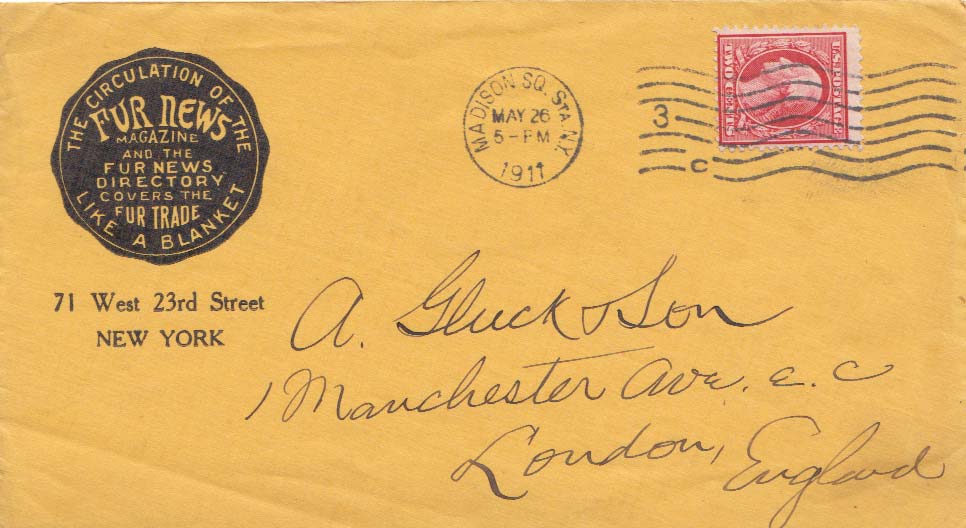 THE CIRCULATION OF THE
FUR NEWS
MAGAZINE
AND THE
FUR NEWS
DIRECTORY
COVERS THE
FUR TRADE
LIKE A BLANKET
71 West 23rd Street
NEW YORK
MADISON SQ. STA. N.Y.
MAY 26
5-PM
1911
3
C
U.S. POSTAGE
TWO CENTS 2
A. Gluck & Son
1 Manchester Ave. E. C
London, England